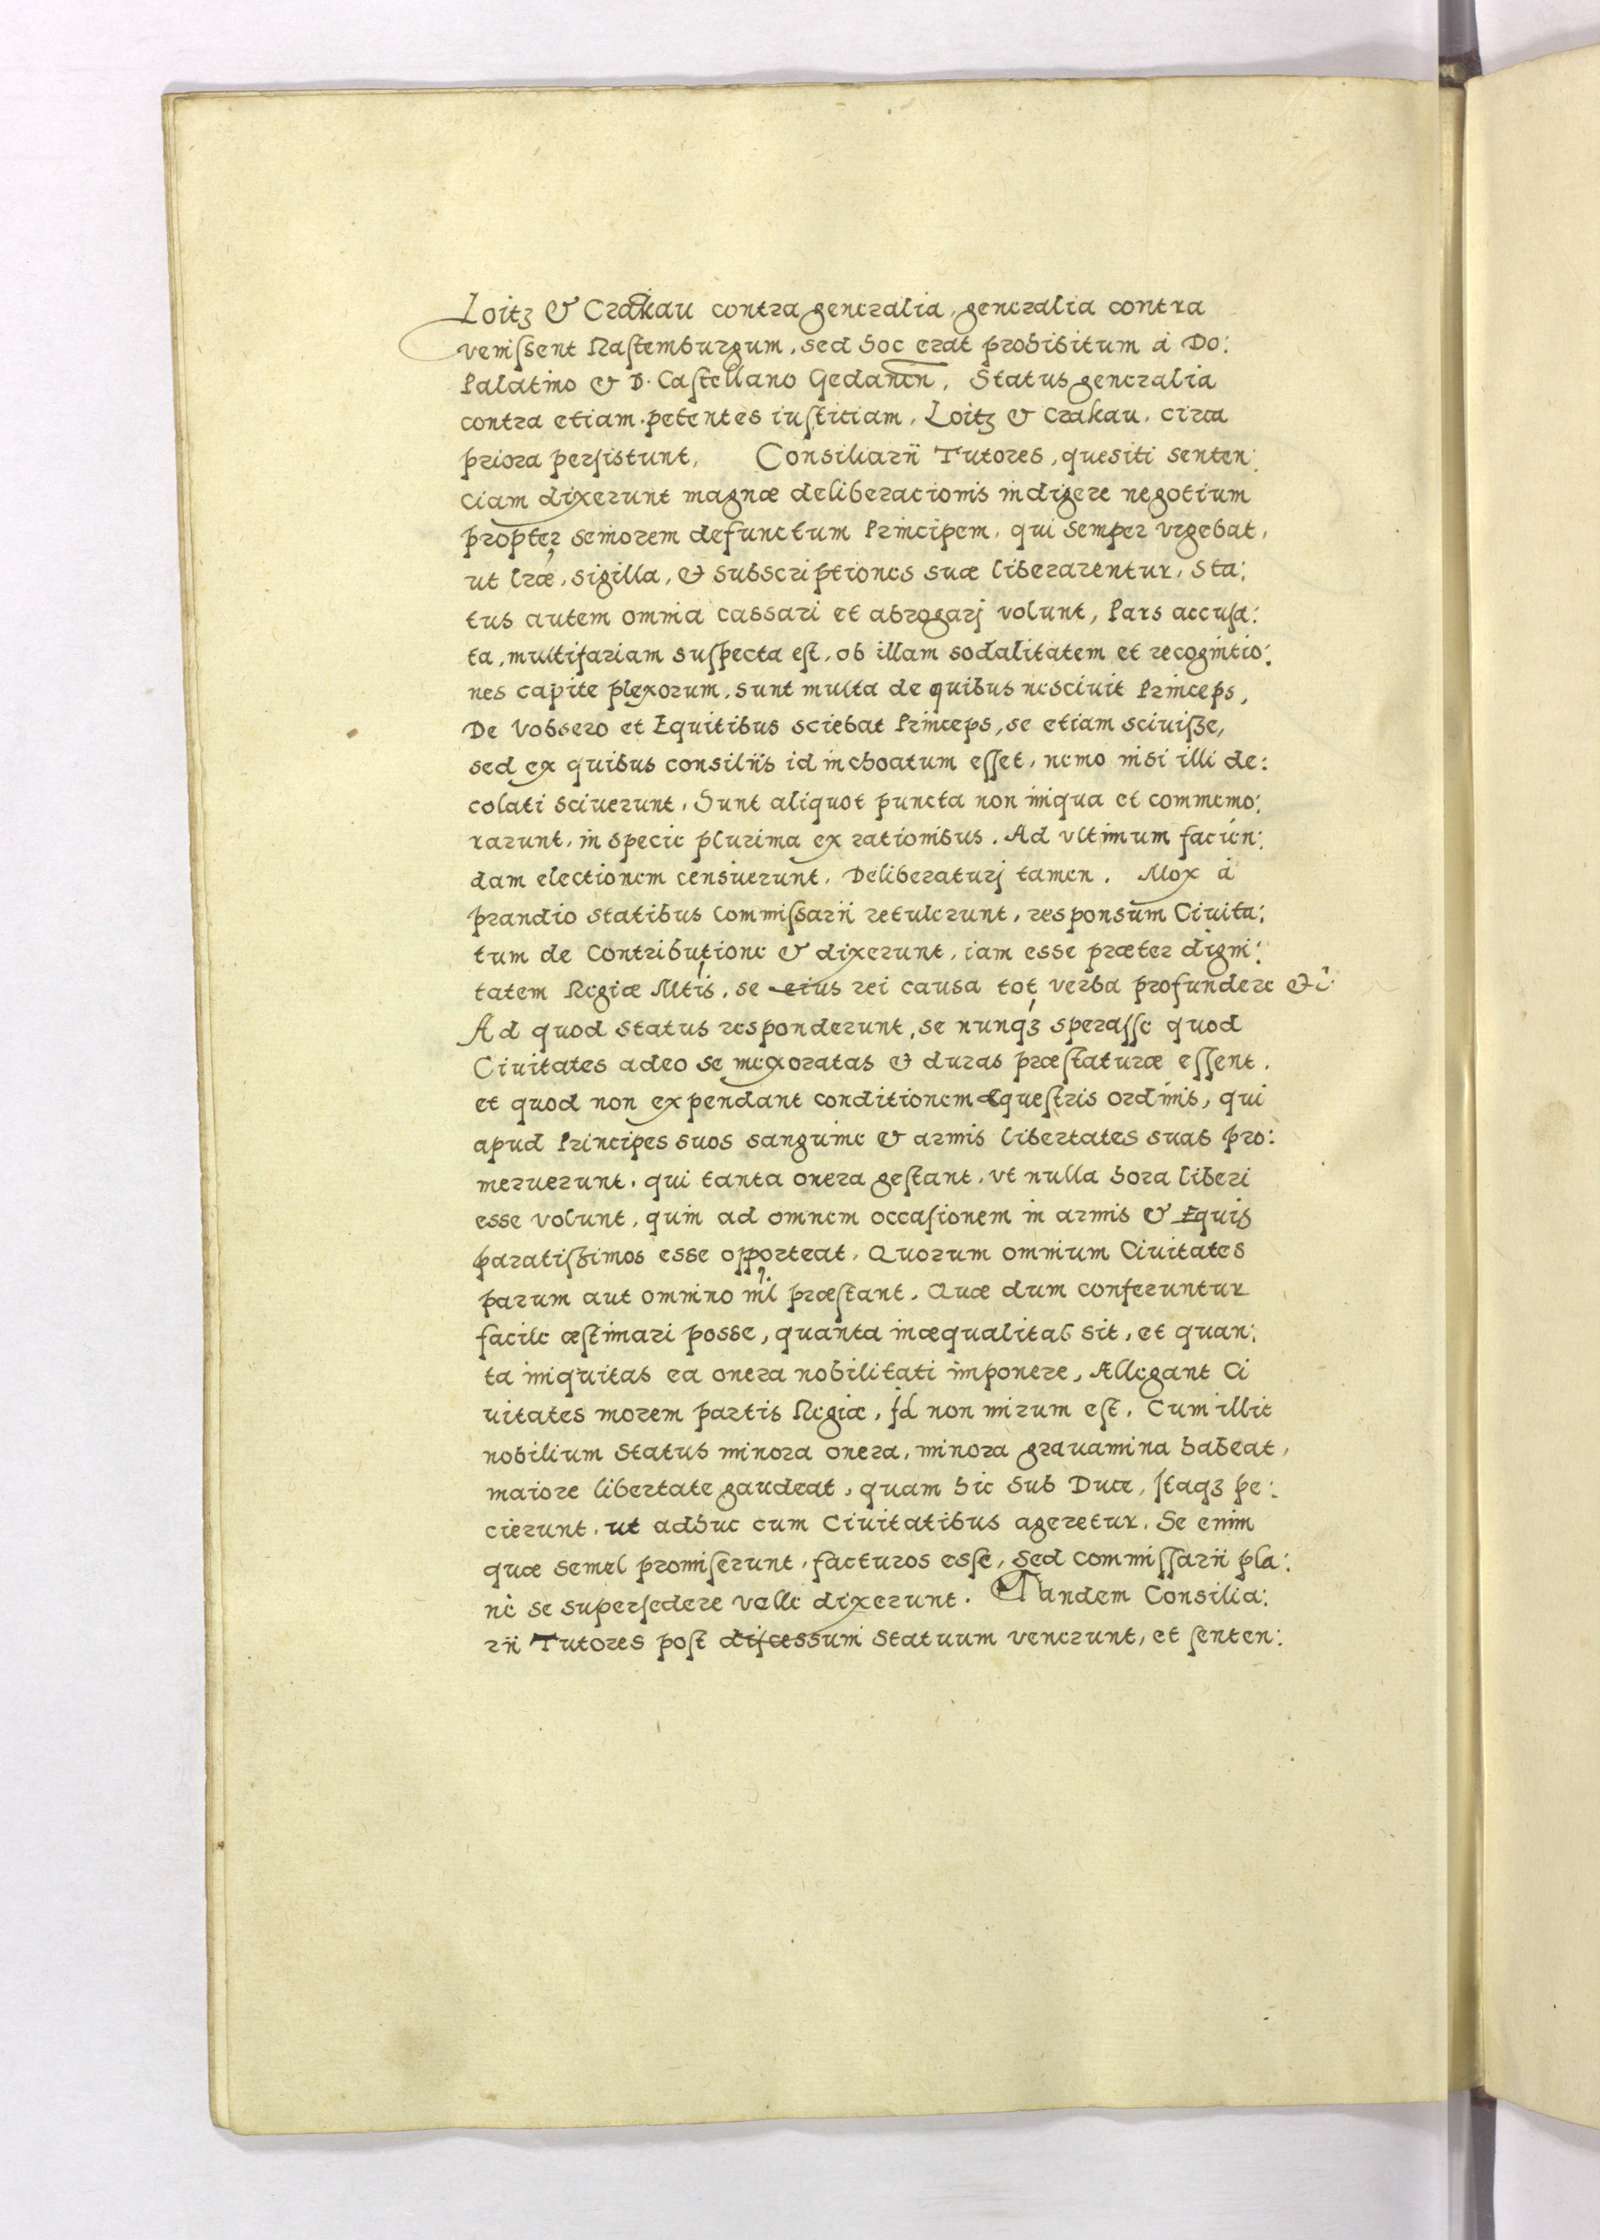 Loitz & Crakau contra generalia, generalia contra
venissent Rastemburgum, sed hoc erat prohibitum à Do:
Palatino & D. Castellano Gedanen, Status generalia
contra etiam petentes iustitiam, Loitz & Crakau, circa
priora persistunt, Consiliarii Tutores, quesiti senten:
ciam dixerunt magnæ deliberacionis indigere negotium
propter seniorem defunctum Principem, qui semper vrgebat,
ut lræ, sigilla, & subscriptiones suæ liberarentur, Sta:
tus autem omnia cassari et abrogarj volunt, Pars accusa:
ta, multifariam suspecta est, ob illam sodalitatem et recognitio:
nes capite plexorum, sunt multa de quibus nesciuit Princeps,
De Vobsero et Equitibus sciebat Princeps, se etiam sciuisse,
sed ex quibus consiliis id inchoatum esset, nemo nisi illi de:
colati sciuerunt, Sunt aliquot puncta non iniqua et commemo:
rarunt, in specie plurima ex rationibus. Ad vltimum facien:
dam electionem censuerunt, Deliberaturj tamen. Mox à
prandio statibus Commissarii retulerunt, responsum Ciuita:
tum de Contributione & dixerunt, iam esse præter digni:
tatem Regiæ Mtis, se eius rei causa tot verba profundere &c
Ad quod status responderunt, se nunqz sperasse quod
Ciuitates adeo se inexoratas & duras præstaturæ essent.
et quod non expendant conditionem Equestris ordinis, qui
apud Principes suos sanguine & armis libertates suas pro:
meruerunt, qui tanta onera gestant, vt nulla hora liberi
esse volunt, quin ad omnem occasionem in armis & Equis
paratissimos esse opporteat, Quorum omnium Ciuitates
parum aut omnino nil præstant. Quæ dum conferuntur
facile æstimari posse, quanta inæqualitas sit, et quan:
ta iniquitas ea onera nobilitati imponere, Allegant Ci
uitates morem partis Regiæ, Id non mirum est, Cum illic
nobilium status minora onera, minora grauamina habeat,
maiore libertate gaudeat, quam hic sub Duce, Itaqz pe:
cierunt, ut adhuc cum Ciuitatibus ageretur, Se enim
quæ semel promiserunt, facturos esse, Sed commissarii pla:
nè se supersedere velle dixerunt. Tandem Consilia:
rii Tutores post discessum Statuum venerunt, et senten: